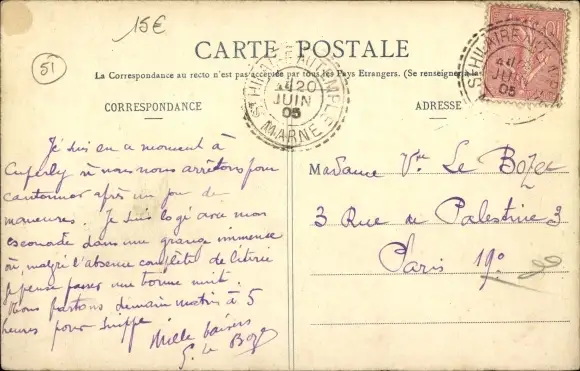 15€
51
CARTE POSTALE
La Correspondance au recto n'est pas acceptée par tous les Pays Etrangers. (Se renseigner à
CORRESPONDANCE
ADRESSE
ST HILAIRE-AU-TEMPLE
20
JUIN
05
MARNE
ST HILAIRE
JUIN
05
10
Je suis en ce moment à
Cuperly où nous nous arrêtons pour
cantonner après un jour de
manœuvres. Je suis logé avec mon
escouade dans une grange immense
où malgré l'absence complète de literie
je pense passer une bonne nuit.
Nous partons demain matin à 5
heures pour Suippe
Mille baisers
Le Bozec
Madame Vve Le Bozec
3 Rue de Palestine 3
Paris 19e